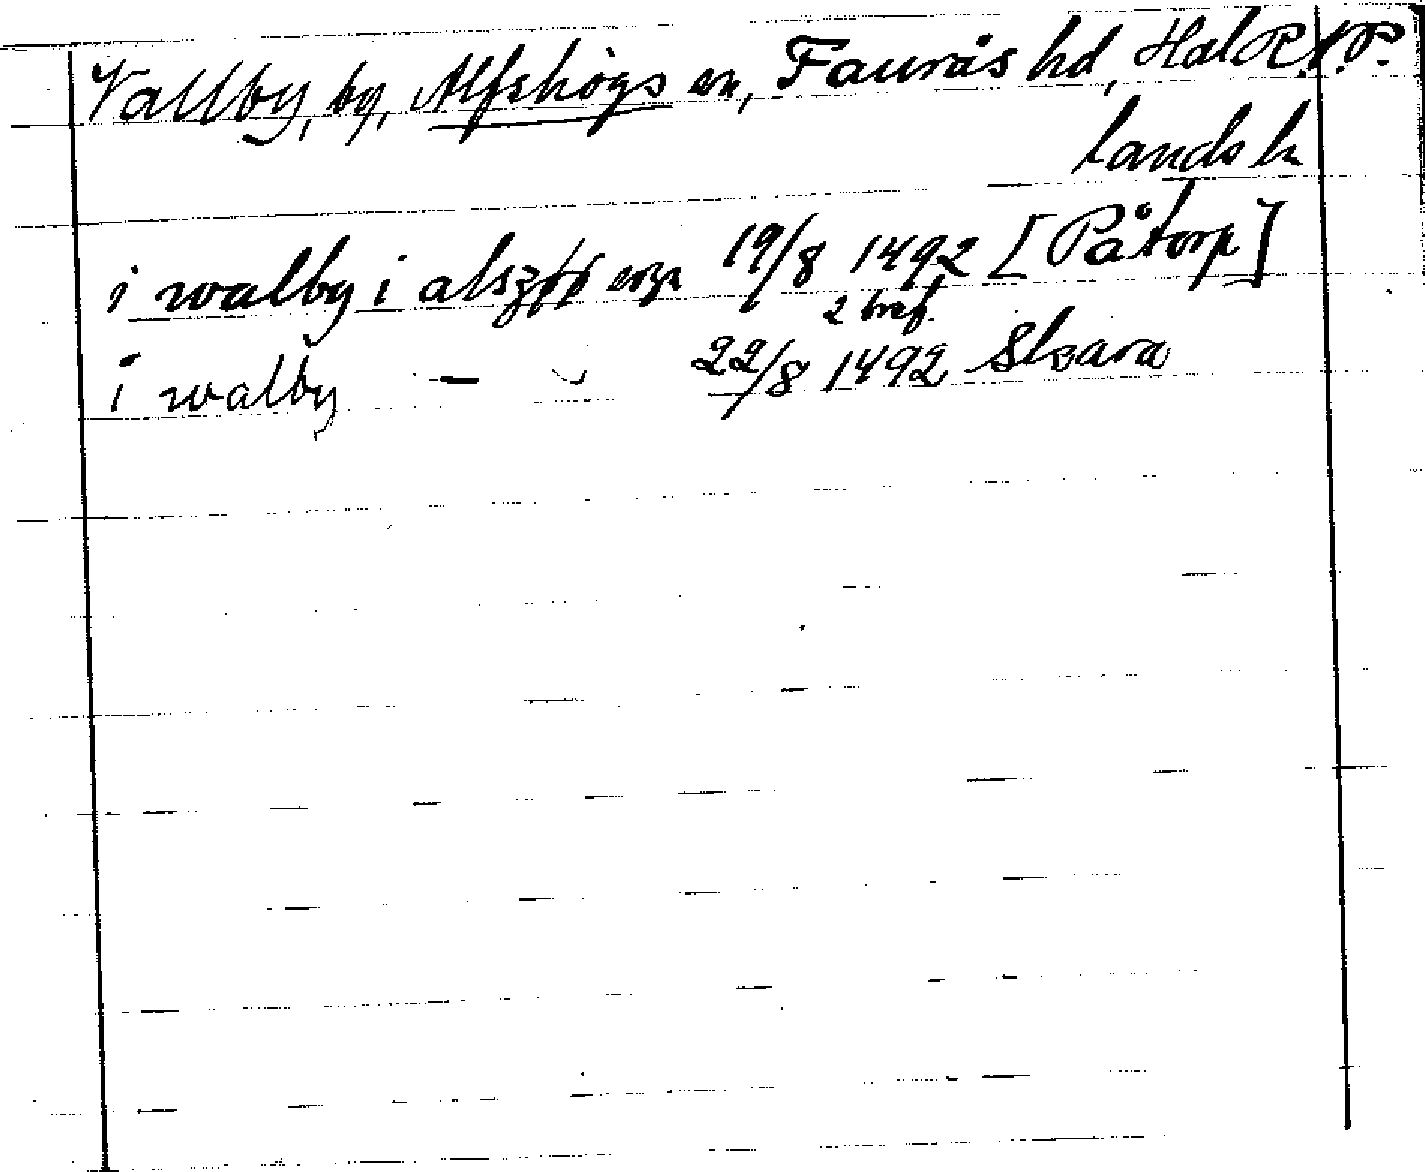 Vallby, by, Alfshögs sn, Faurås hd, Hal R.A.P.
lands l.
i walby i alszhø sogn 19/8 1492 [Påtorp]
2 bref.
i walby - " 22/8 1492 Skara